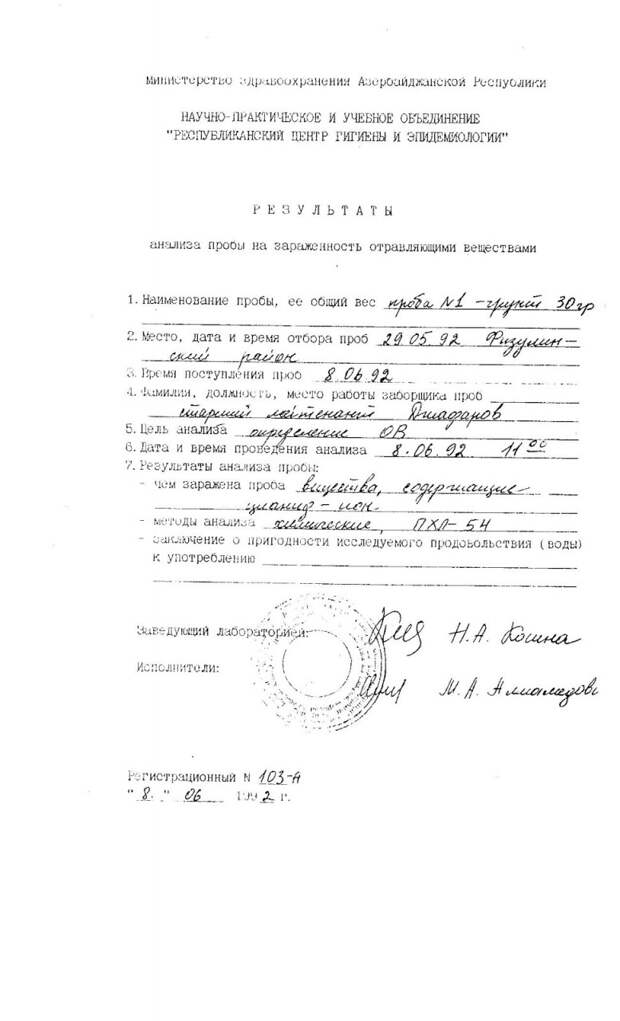 Министерство здравоохранения Азербайджанской Республики
НАУЧНО-ПРАКТИЧЕСКОЕ И УЧЕБНОЕ ОБЪЕДИНЕНИЕ
"РЕСПУБЛИКАНСКИЙ ЦЕНТР ГИГИЕНЫ И ЭПИДЕМИОЛОГИИ"
Р Е З У Л Ь Т А Т Ы
анализа пробы на зараженность отравляющими веществами
1. Наименование пробы, ее общий вес проба N1 - грунт 30гр
2. Место, дата и время отбора проб 29.05.92 Физулин-
ский район
3. Время поступления проб 8.06.92
4. Фамилия, должность, место работы заборщика проб
старший лейтенант Джафаров
5. Цель анализа определение ОВ
6. Дата и время проведения анализа 8.06.92 11 00
7. Результаты анализа пробы:
- чем заражена проба вещества, содержащие
цианид - ион.
- методы анализа химические, ПХЛ-54
- заключение о пригодности исследуемого продовольствия (воды)
к употреблению
Заведующий лабораторией: Н.А. Косина
Исполнители: М.А.
Регистрационный N 103-А
"8." 06 1992 г.